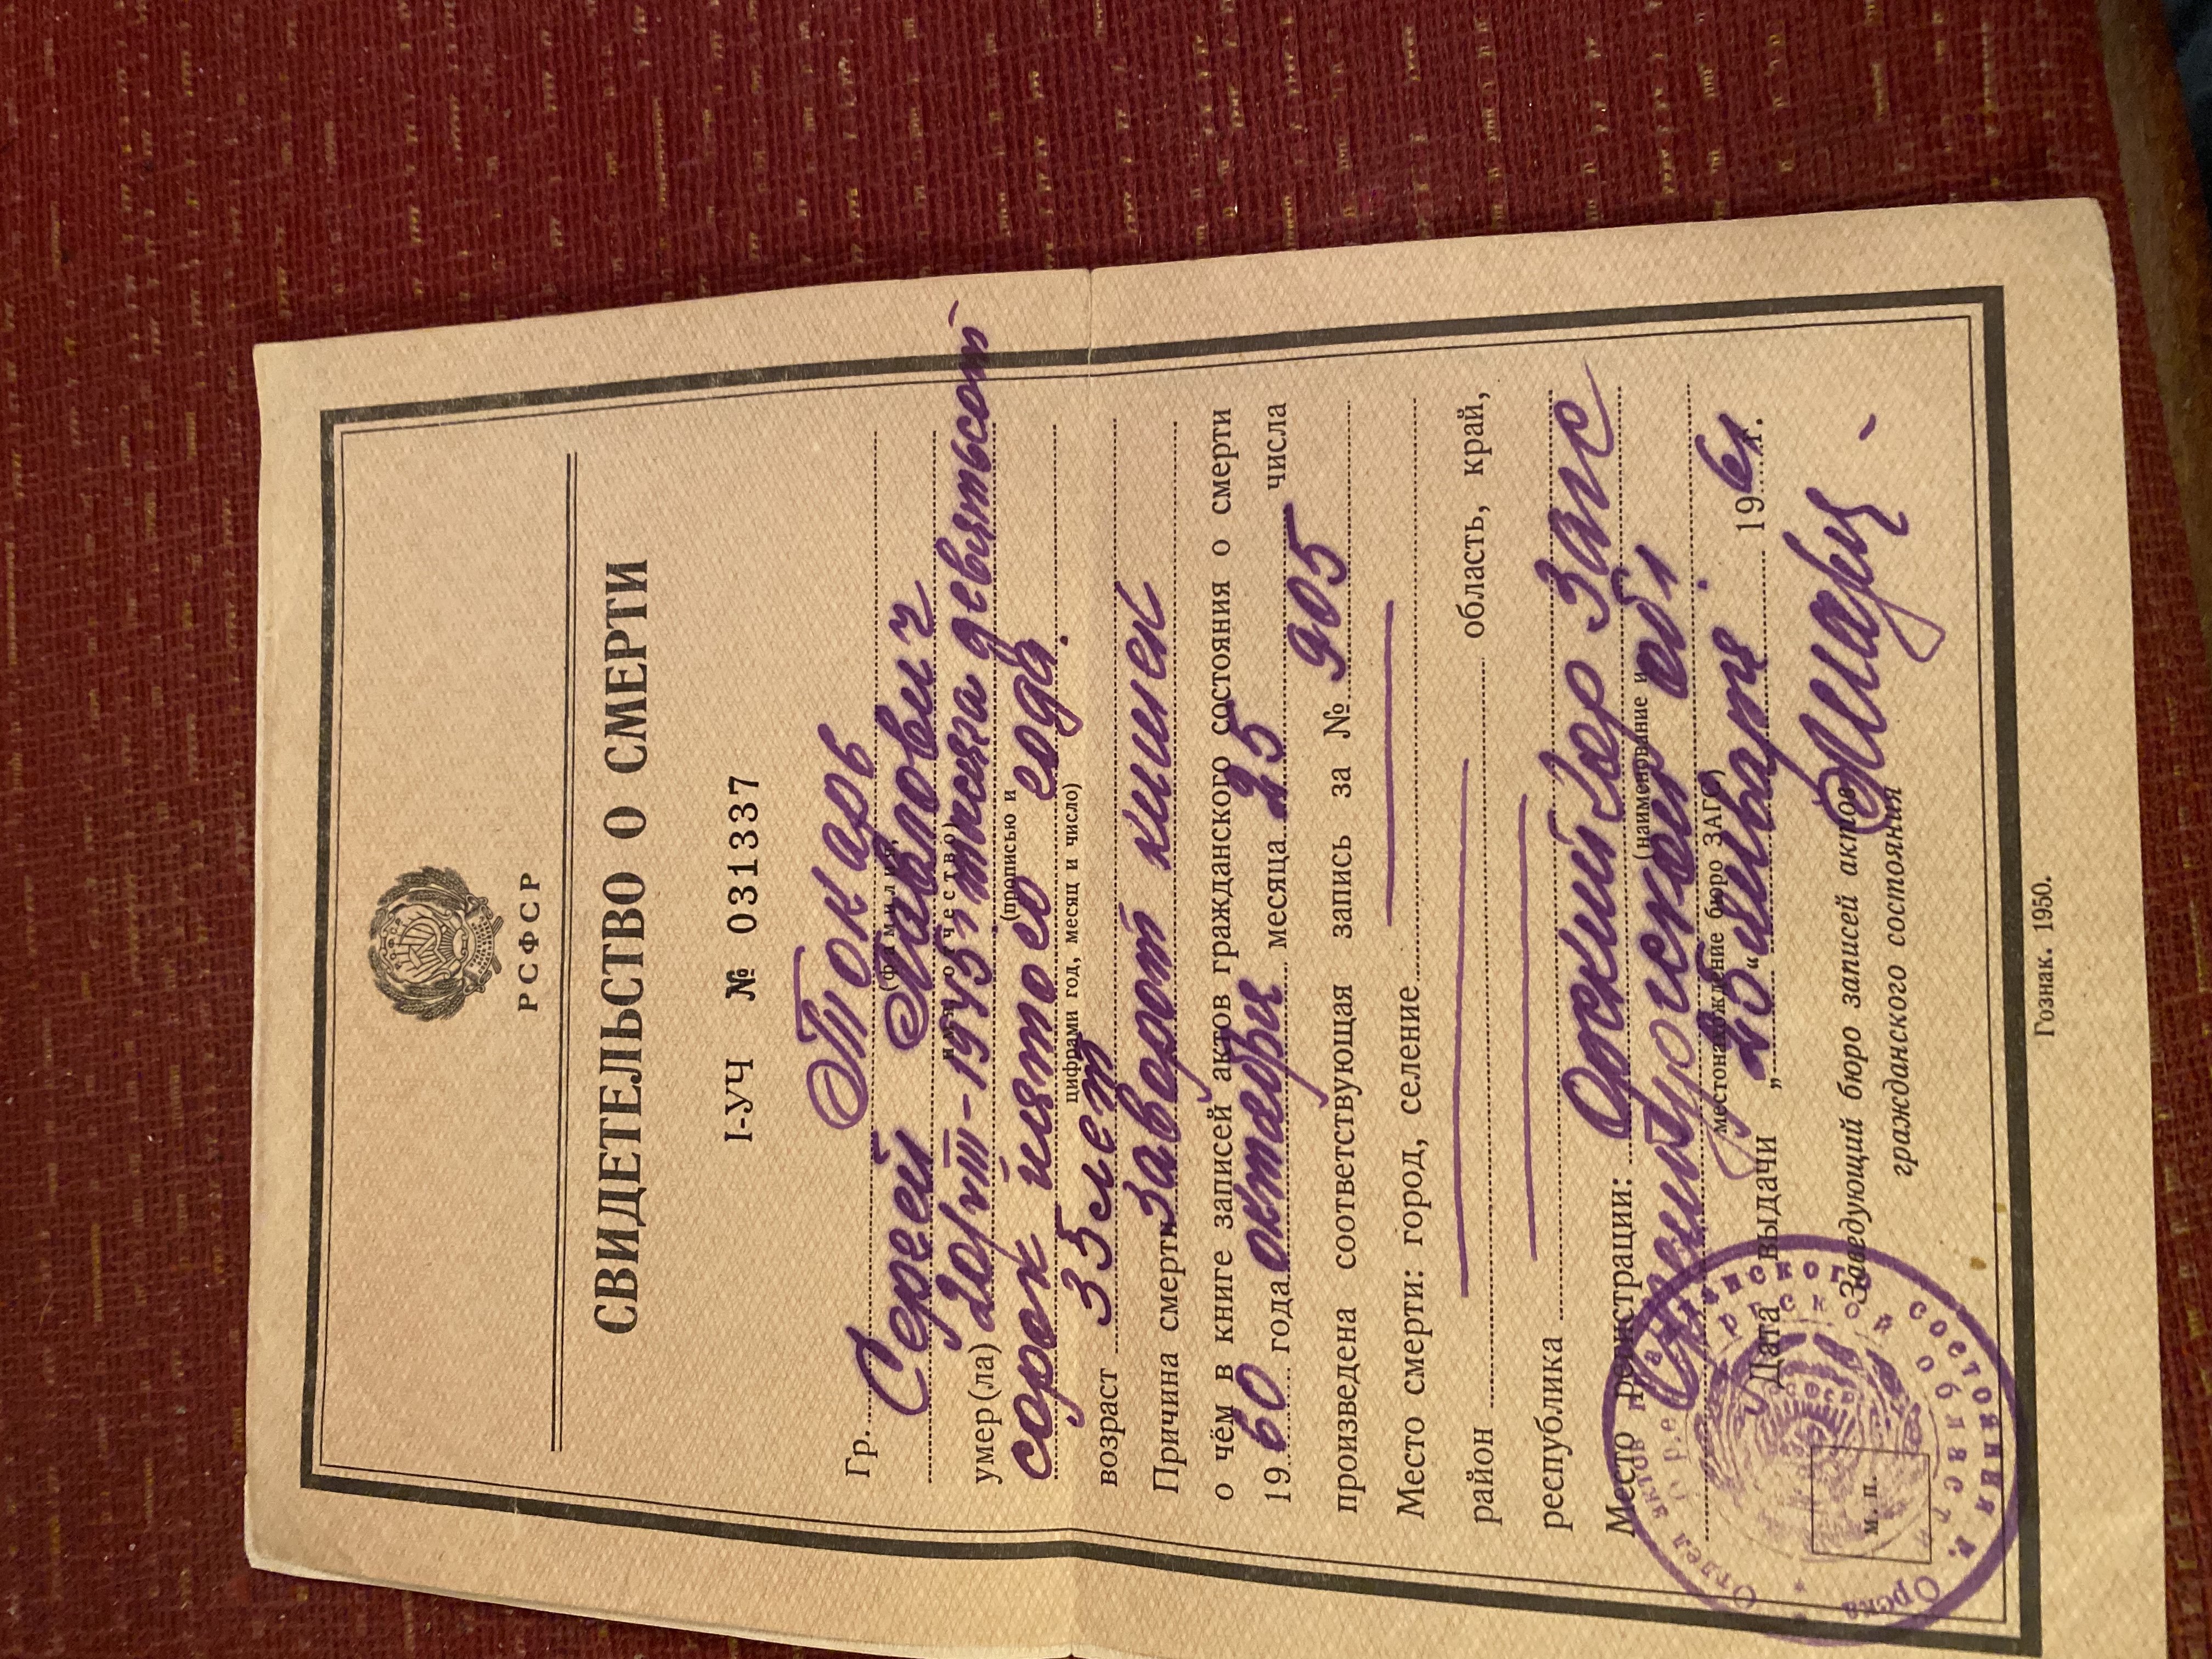 РСФСР
СВИДЕТЕЛЬСТВО О СМЕРТИ
I-УЧ № 031337
Гр. Токарь
(фамилия,
Сергей Павлович
имя, отчество)
умер(ла) 20/VIII-1945 г тысяча девятьсот
(прописью и
сорок пятого года.
цифрами год, месяц и число)
возраст 35 лет
Причина смерти Заворот кишек
о чём в книге записей актов гражданского состояния о смерти
1960 года октября месяца 25 числа
произведена соответствующая запись за № 905
Место смерти: город, селение
район область, край,
республика
Место регистрации: Орский гор Загс
(наименование и
обл.
местонахождение бюро ЗАГС)
Дата выдачи „25“ января 1961 г.
Заведующий бюро записей актов
гражданского состояния
М. П.
Отдел актов гражданского состояния г. Орска
Оренбургской области
Гознак. 1950.